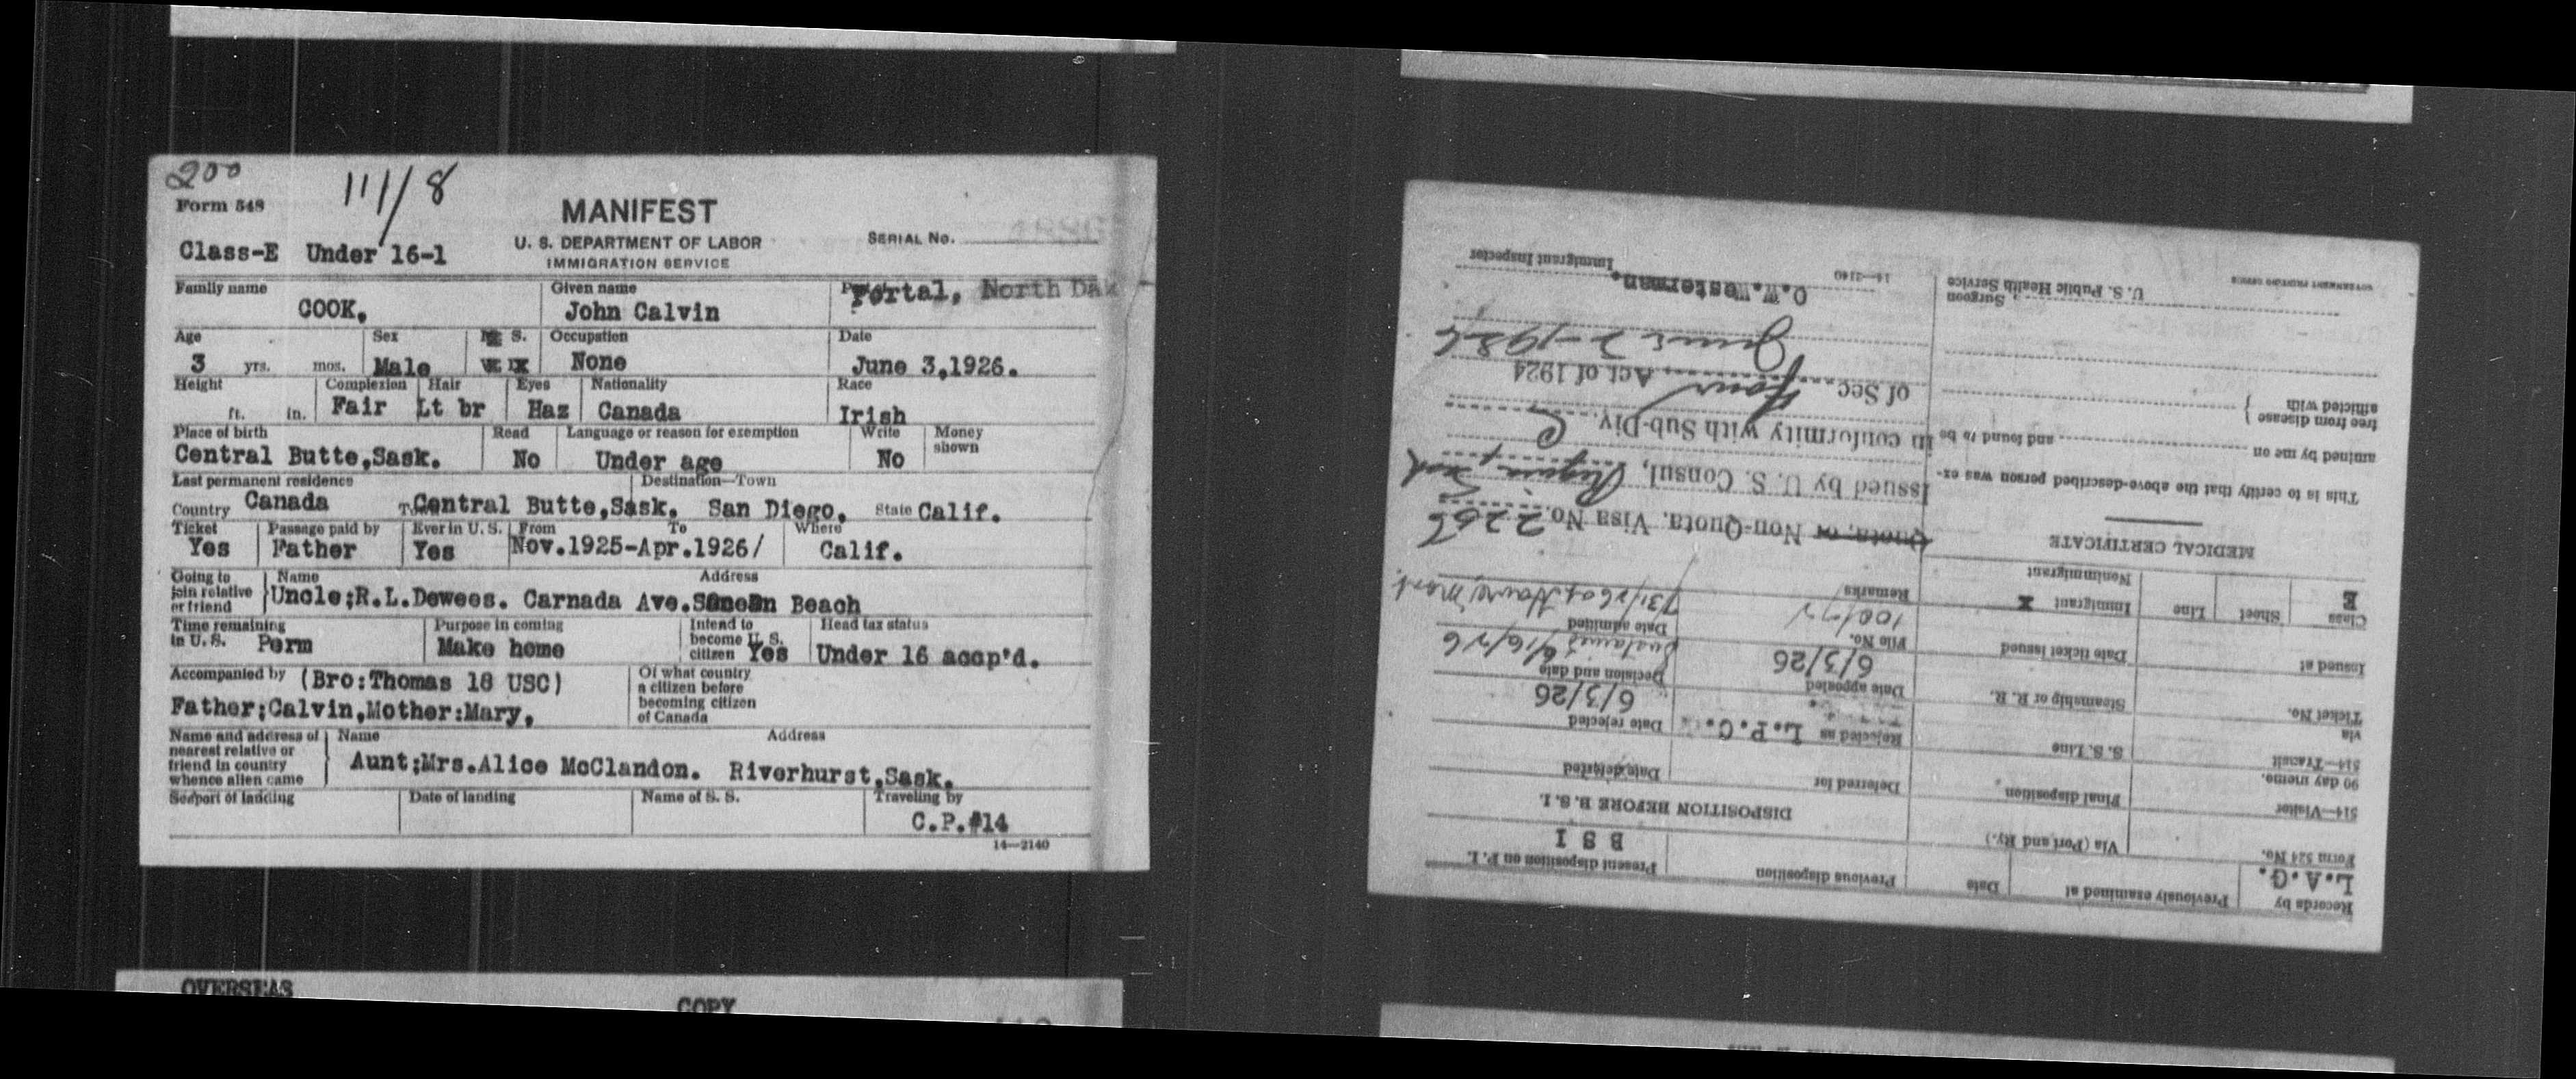 200
111/8
Form 548
MANIFEST
U. S. DEPARTMENT OF LABOR
IMMIGRATION SERVICE
SERIAL No.
Class-E Under 16-1
Family name Given name
COOK, John Calvin Portal, North Dak
Age Sex S. Occupation Date
3 yrs. mos. Male None June 3,1926.
Height Complexion Hair Eyes Nationality Race
ft. in. Fair Lt br Haz Canada Irish
Place of birth Read Language or reason for exemption Write Money shown
Central Butte,Sask. No Under age No
Last permanent residence Destination—Town
Country Canada Central Butte,Sask. San Diego, State Calif.
Ticket Passage paid by Ever in U. S. From To Where
Yes Father Yes Nov.1925-Apr.1926/ Calif.
Going to join relative or friend Name Address
Uncle;R.L.Dewees. Carnada Ave. Beach
Time remaining in U. S. Perm
Purpose in coming Make home
Intend to become U. S. citizen Yes
Head tax status Under 16 accp'd.
Accompanied by (Bro:Thomas 18 USC)
Father;Calvin,Mother:Mary,
Of what country a citizen before becoming citizen of Canada
Name and address of nearest relative or friend in country whence alien came
Name Address
Aunt;Mrs.Alice McClandon. Riverhurst,Sask.
Seaport of landing Date of landing Name of S. S. Traveling by
C.P.#14
14—2140
OVERSEAS COPY
Records by L.A.G.
Previously examined at Date Previous disposition Present disposition on P. I.
B S I
Form 524 No. Via (Port and Ry.)
DISPOSITION BEFORE B. S. I.
514—Visitor
90 day memo.
Final disposition Deferred for Date deferred
514—Transit via
S. S. Line Rejected as L.P.C. Date rejected 6/3/26
Ticket No. Steamship or R. R. Date appealed 6/3/26 Decision and date Sustained 6/16/26
Issued at Date ticket issued File No. 100/72 Date admitted 7/31/26 at Havre, Mont.
Class E Sheet Line Immigrant X Nonimmigrant Remarks
MEDICAL CERTIFICATE
Quota, or Non-Quota. Visa No. 2266
This is to certify that the above-described person was ex-
amined by me on and found to be
free from disease
afflicted with
Issued by U. S. Consul, Regina, Sask
in conformity with Sub-Div. C
of Sec. Four, Act of 1924
June 3-1926
O.W.Westerman.
Immigrant Inspector
14—2140
Surgeon
U. S. Public Health Service
GOVERNMENT PRINTING OFFICE